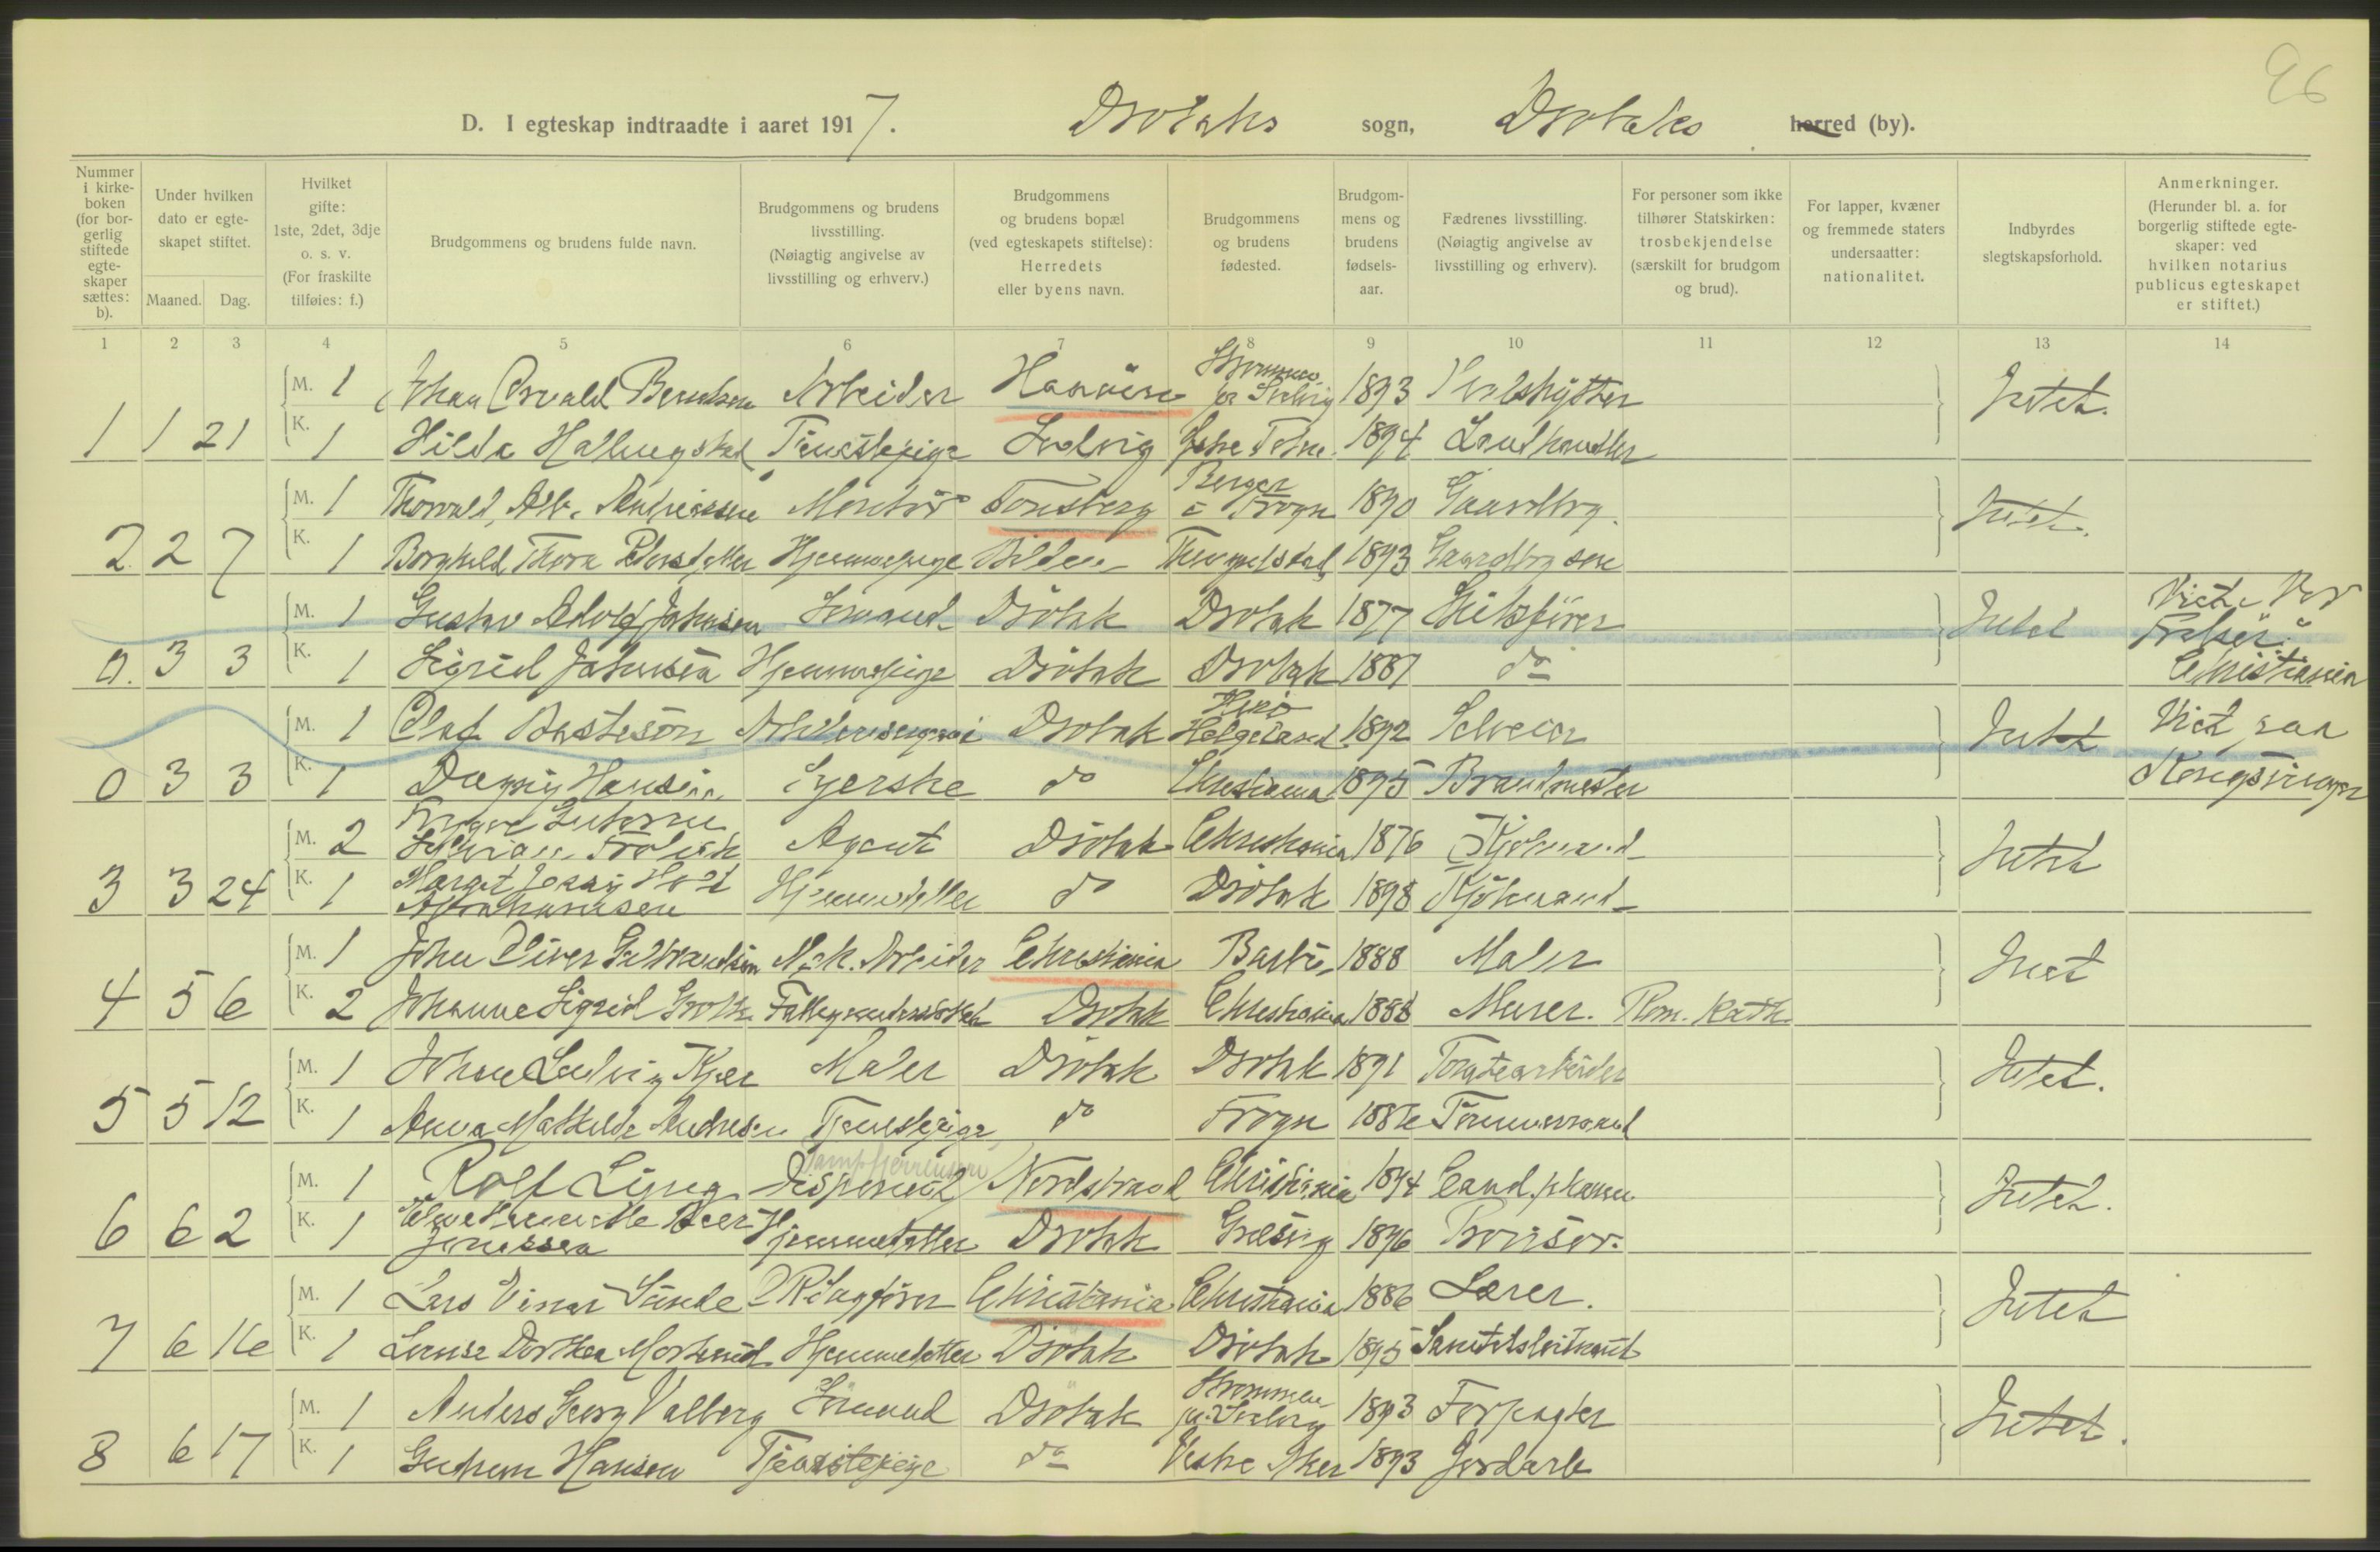 96
D. I egteskap indtraadte i aaret 1917. Drøbaks sogn, Drøbaks herred (by).
Nummer i kirkeboken (for borgerlig stiftede egteskaper sættes: b).
Under hvilken dato er egteskapet stiftet.
Maaned. Dag.
Hvilket gifte: 1ste, 2det, 3dje o. s. v. (For fraskilte tilføies: f.)
Brudgommens og brudens fulde navn.
Brudgommens og brudens livsstilling. (Nøiagtig angivelse av livsstilling og erhverv.)
Brudgommens og brudens bopæl (ved egteskapets stiftelse): Herredets eller byens navn.
Brudgommens og brudens fødested.
Brudgommens og brudens fødselsaar.
Fædrenes livsstilling. (Nøiagtig angivelse av livsstilling og erhverv).
For personer som ikke tilhører Statskirken: trosbekjendelse (særskilt for brudgom og brud).
For lapper, kvæner og fremmede staters undersaatter: nationalitet.
Indbyrdes slegtskapsforhold.
Anmerkninger. (Herunder bl. a. for borgerlig stiftede egteskaper: ved hvilken notarius publicus egteskapet er stiftet.)
1 2 3 4 5 6 7 8 9 10 11 12 13 14
M. 1 Johan Osvald Berntsen Arbeider 1893 Intet.
1 1 21 K. 1 Hilda Tjenestepige Svelvig 1894 Landhandler
M. 1 Thorvald Alb. Andreassen Montør Tønsberg Berger i Frogn 1890 Gaardbrg. Intet.
2 2 7 K. 1 Borghild Thora Hjemmepige 1893
M. 1 Gustav Adolf Johansen Sømand Drøbak Drøbak 1877 Skibsfører Intet Viet i Vor Frelser
0. 3 3 K. 1 Sigrid Johansen Hjemmepige Drøbak Drøbak 1887 do Christiania
M. 1 Olaf Drøbak Herø Helgeland 1892 Selveier Intet Viet paa
0 3 3 K. 1 Dagny Hansen Syerske do Christiania 1895 Brandmester Kongsvinger
M. 2 Trygve Frölich Agent Drøbak Christiania 1876 Kjøbmand Intet
3 3 24 K. 1 Margit Jenny Holt Abrahamsen Hjemmedatter do Drøbak 1898 Kjøbmand
M. 1 John Oliver Gulbrandsen Mek. Arbeider Christiania 1888 Maler Intet
4 5 6 K. 2 Johanne Sigrid Drøbak Christiania 1888 Murer. Rom. Kath.
M. 1 Johan Ludvig Kjær Maler Drøbak Drøbak 1891 Intet.
5 5 12 K. 1 Anna Mathilde Andresen Tjenestepige do Frogn 1886 Tømmermand
M. 1 Rolf Ling Disponent Nordstrand Christiania 1894 Cand. pharm. Intet.
6 6 2 K. 1 Jonassen Hjemmedatter Drøbak 1896 Provisor.
M. 1 Lars Einar Sunde Christiania Christiania 1886 Lærer. Intet
7 6 16 K. 1 Dorthea Hjemmedatter Drøbak Drøbak 1895
M. 1 Anders Georg Valberg Sømand Drøbak Strømmen pr. Svelvig 1893 Forpagter Intet.
8 6 17 K. 1 Gudrun Hansen Tjenestepige do Vestre Aker 1893 Jordarb